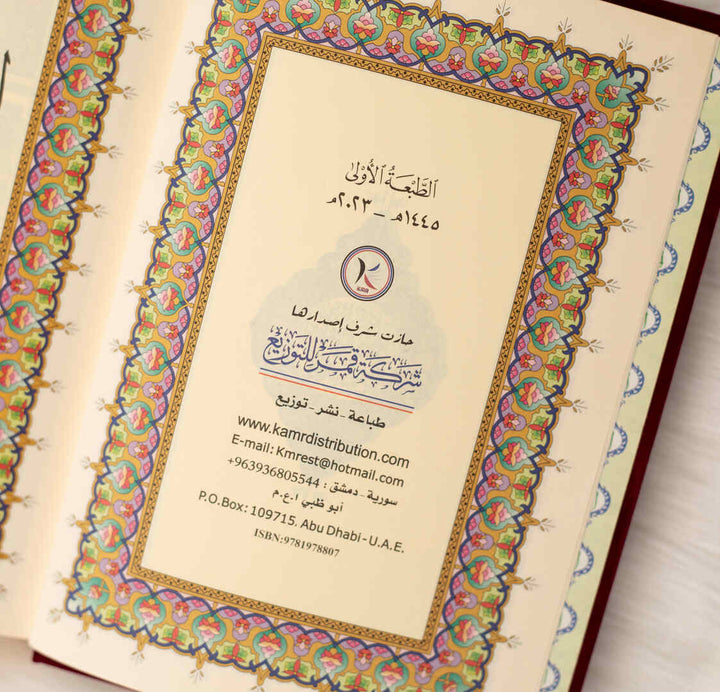 الطَّبْعَةُ الأُوْلَى
١٤٤٥هـ – ٢٠٢٣م
KMR
حازت شرف إصدارها
شركة قمر للتوزيع
طباعة - نشر - توزيع
www.kamrdistribution.com
E-mail: Kmrest@hotmail.com
سورية - دمشق : 963936805544+
أبو ظبي ا.ع.م
P.O.Box: 109715, Abu Dhabi-U.A.E.
ISBN:9781978807